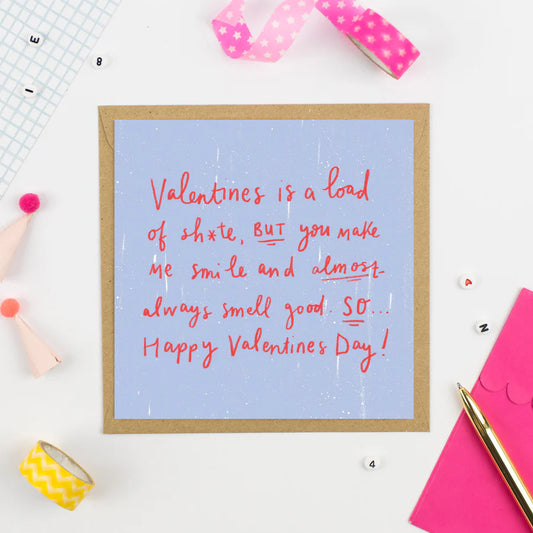 Valentines is a load
of sh*te, BUT you make
me smile and almost
always smell good. SO...
Happy Valentines Day!
E
8
I
A
N
4